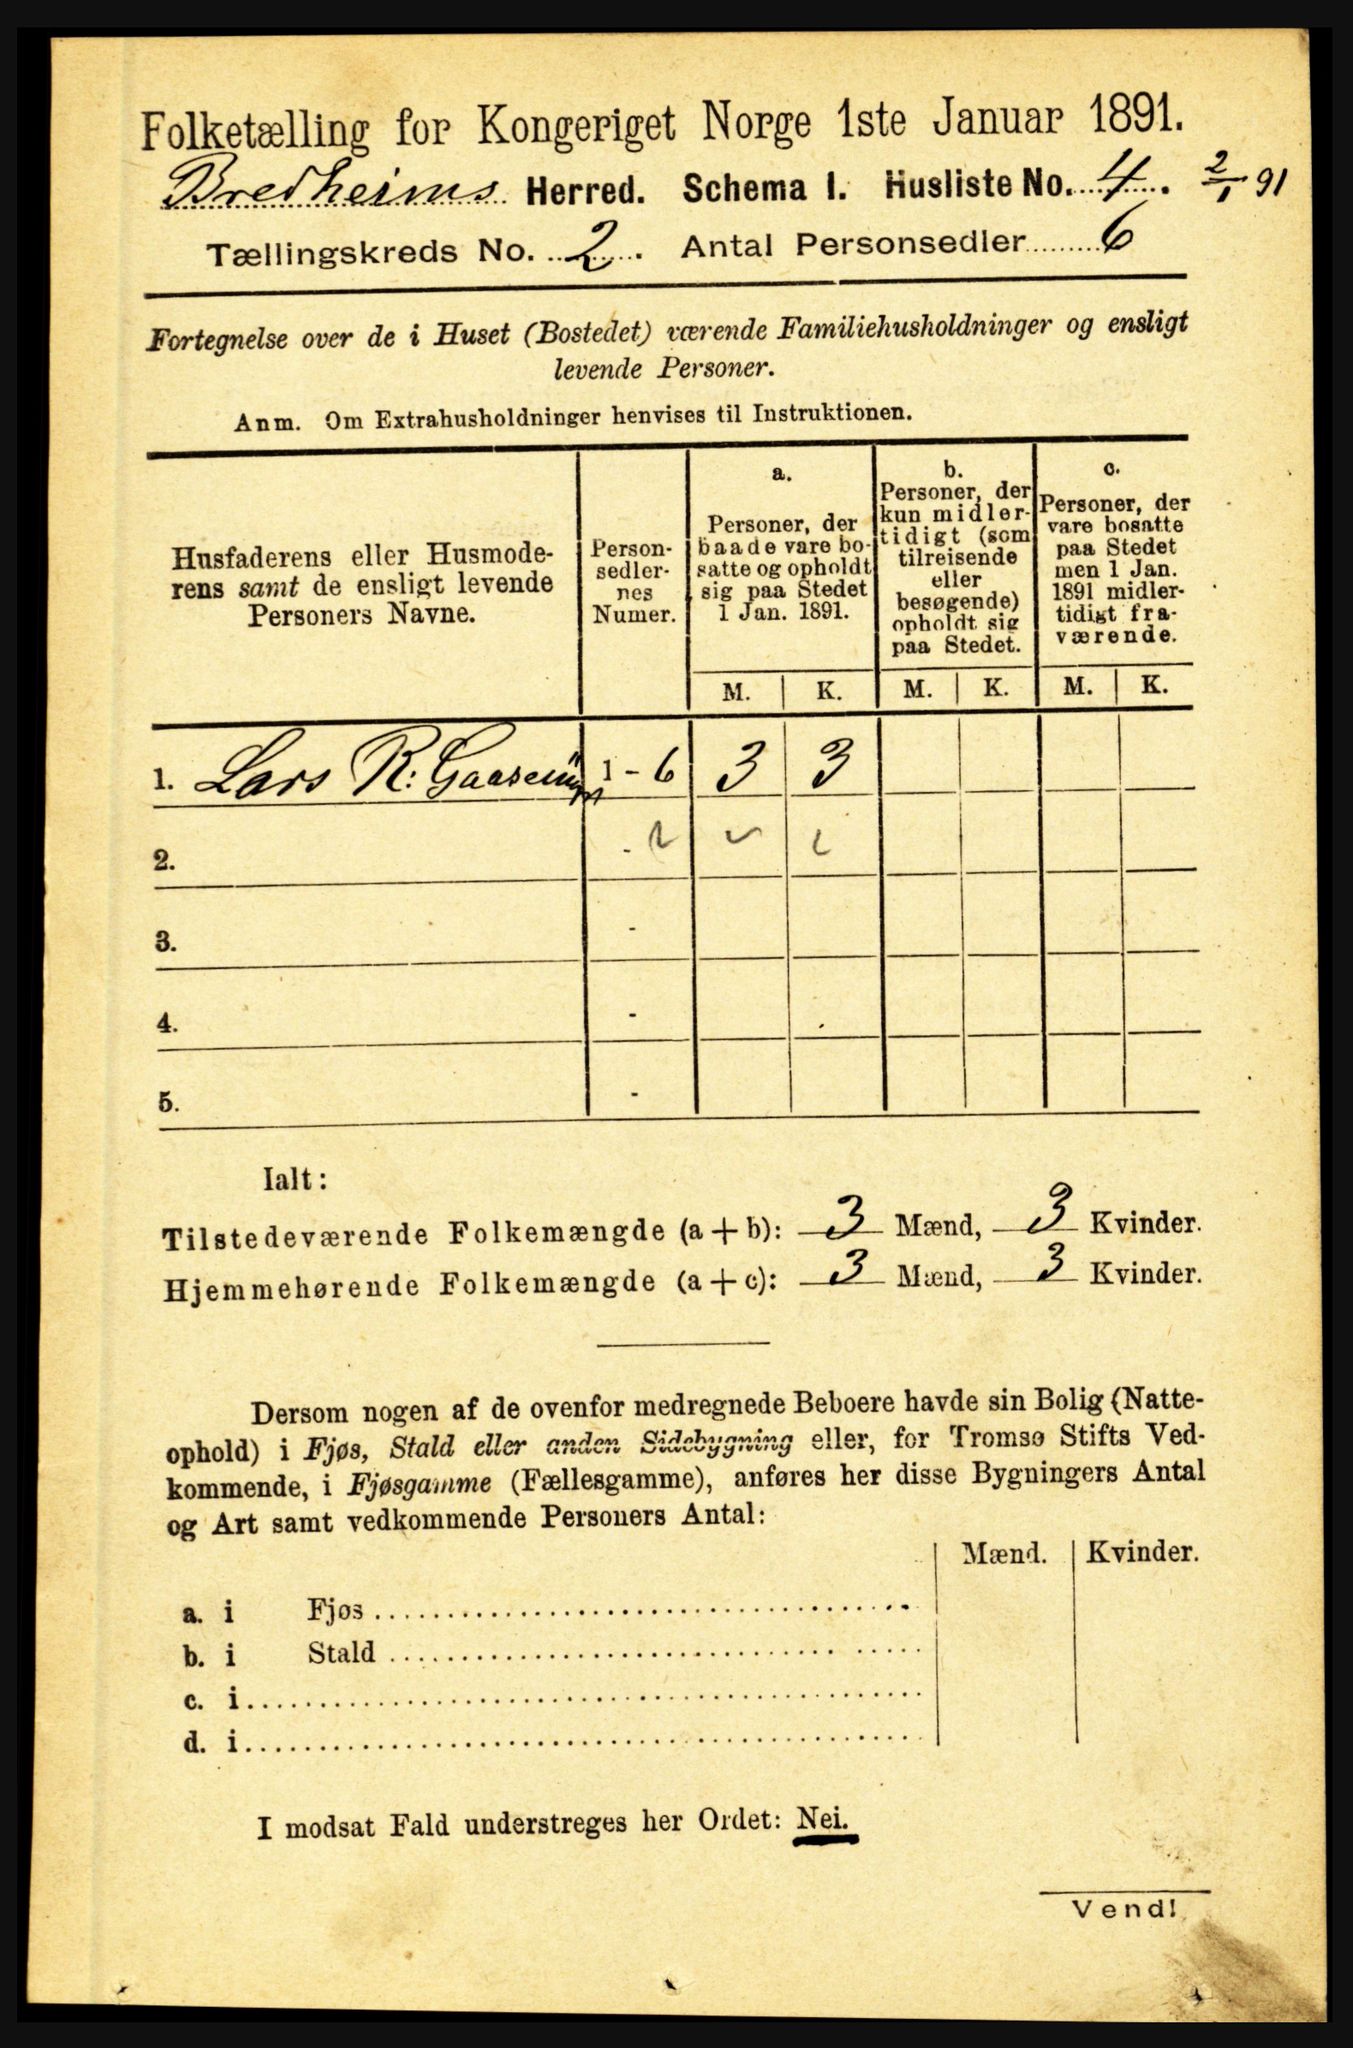 Folketælling for Kongeriget Norge 1ste Januar 1891.
Bredheims Herred. Schema I. Husliste No. 4. 2/1 91
Tællingskreds No. 2. Antal Personsedler 6
Fortegnelse over de i Huset (Bostedet) værende Familiehusholdninger og ensligt
levende Personer.
Anm. Om Extrahusholdninger henvises til Instruktionen.
Husfaderens eller Husmode-
rens samt de ensligt levende
Personers Navne.
Person-
sedler-
nes
Numer.
a.
Personer, der
baade vare bo-
satte og opholdt
sig paa Stedet
1 Jan. 1891.
b.
Personer, der
kun midler-
tidigt (som
tilreisende
eller
besøgende)
opholdt sig
paa Stedet.
c.
Personer, der
vare bosatte
paa Stedet
men 1 Jan.
1891 midler-
tidigt fra-
værende.
M. K. M. K. M. K.
1. Lars R. 1 - 6 3 3
2. -
3. -
4. -
5. -
Ialt:
Tilstedeværende Folkemængde (a + b): 3 Mænd, 3 Kvinder.
Hjemmehørende Folkemængde (a + c): 3 Mænd, 3 Kvinder.
Dersom nogen af de ovenfor medregnede Beboere havde sin Bolig (Natte-
ophold) i Fjøs, Stald eller anden Sidebygning eller, for Tromsø Stifts Ved-
kommende, i Fjøsgamme (Fællesgamme), anføres her disse Bygningers Antal
og Art samt vedkommende Personers Antal:
Mænd. Kvinder.
a. i Fjøs
b. i Stald
c. i
d. i
I modsat Fald understreges her Ordet: Nei.
Vend!